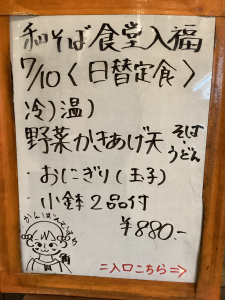 和そば食堂入福
7/10〈日替定食〉
冷)温)
野菜かきあげ天 そば・うどん
・おにぎり(玉子)
・小鉢2品付
¥880.-
かんばんむすめ
=入口こちら=>